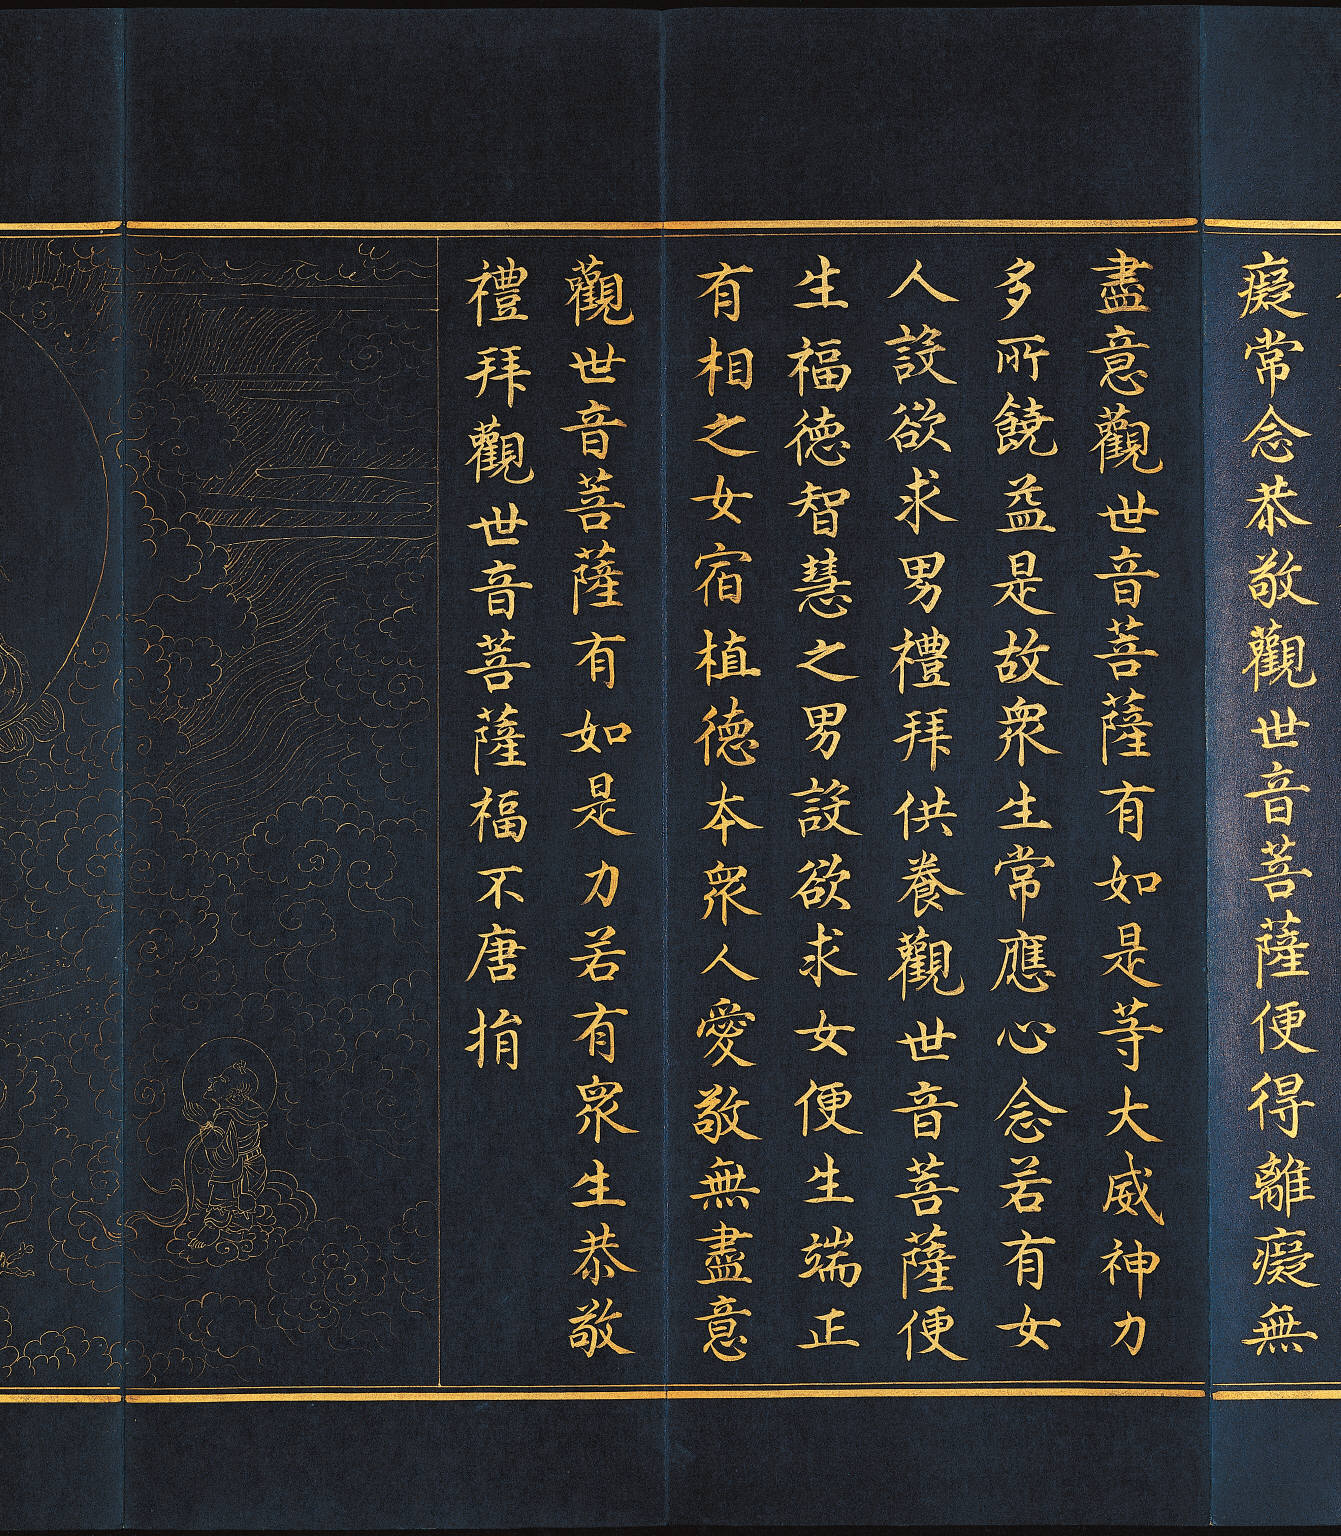 癡常念恭敬觀世音菩薩便得離癡無
盡意觀世音菩薩有如是等大威神力
多所饒益是故眾生常應心念若有女
人設欲求男禮拜供養觀世音菩薩便
生福德智慧之男設欲求女便生端正
有相之女宿植德本眾人愛敬無盡意
觀世音菩薩有如是力若有眾生恭敬
禮拜觀世音菩薩福不唐捐